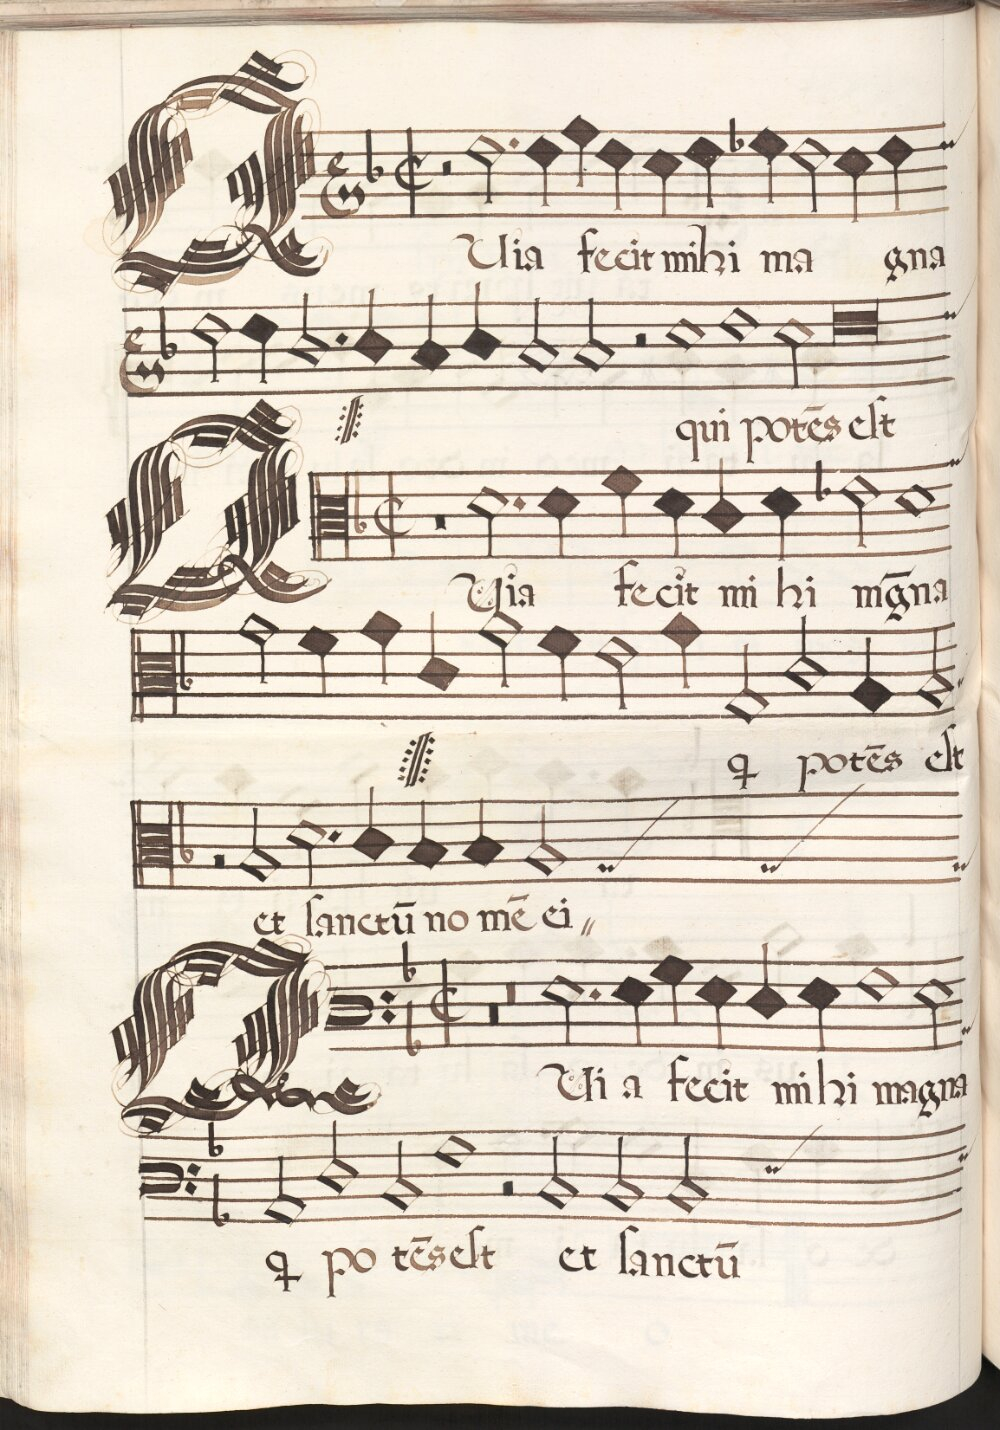 QUia fecit mihi ma gna
qui potēs est
QUia fecit mi hi mḡna
ꝗ potēs est
et sanctū no mē ei
QUi a fecit mihi magna
ꝗ po tēs est et sanctū